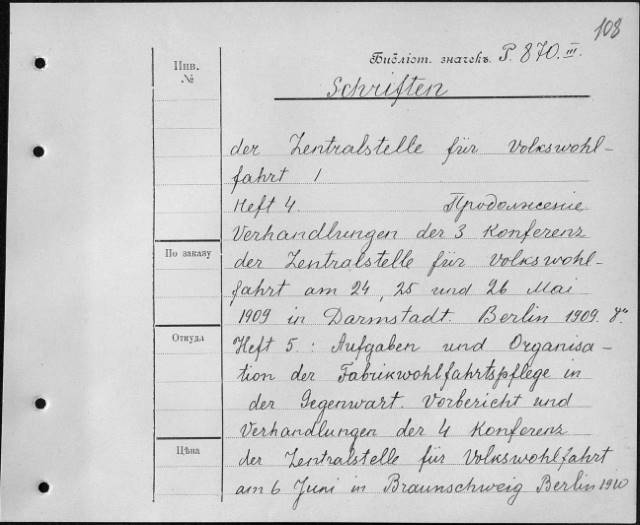 108
Библіот. значекъ P. 870. III.
Инв. №
Schriften
der Zentralstelle für Volkswohl-
fahrt 1
Heft 4. Продолженіе
Verhandlungen der 3 Konferenz
По заказу
der Zentralstelle für Volkswohl-
fahrt am 24, 25 und 26 Mai
1909 in Darmstadt. Berlin 1909. 8°
Откуда
Heft 5.: Aufgaben und Organisa-
tion der Fabrikwohlfahrtspflege in
der Gegenwart. Vorbericht und
Verhandlungen der 4 Konferenz
Цѣна
der Zentralstelle für Volkswohlfahrt
am 6 Juni in Braunschweig Berlin 1910